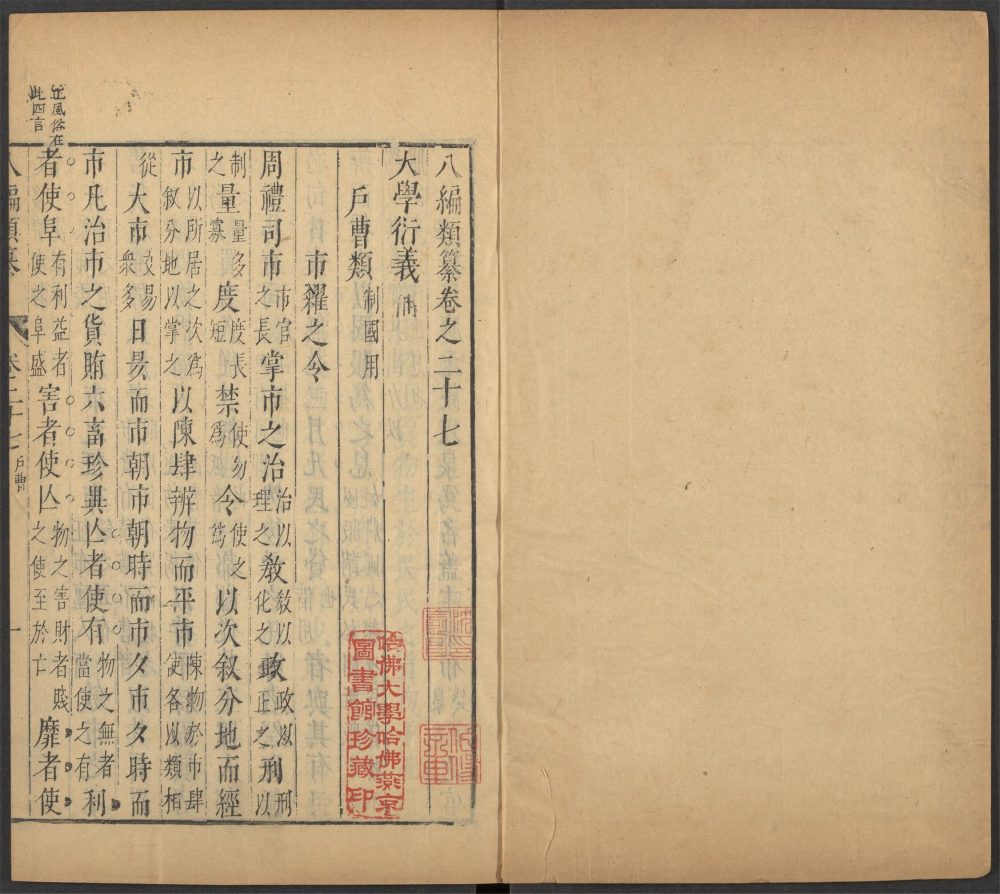 八編類纂卷之二十七
大學衍義補
戶曹類 制國用
市糴之令
周禮司市 市官之長 掌市之治 治以理之 敎 敎以化之 政 政以正之 刑 刑以
制之 量 量多寡 度 度長短 禁 使勿爲 令 使之爲 以次叙分地而經
市 以所居之次爲叙分地以掌之 以陳肆辨物而平市 陳物於市肆使各以類相
從 大市 交易衆多 日昃而市朝市朝時而市夕市夕時而
市凡治市之貨賄六畜珍異亾者使有 物之無者當使之有 利
者使阜 有利益者使之阜盛 害者使亾 物之害財者賤之使至於亡 靡者使
八編類纂 卷二十七 戶曹 一
正風俗在
此四言
哈佛大學哈佛燕京
圖書館珍藏印